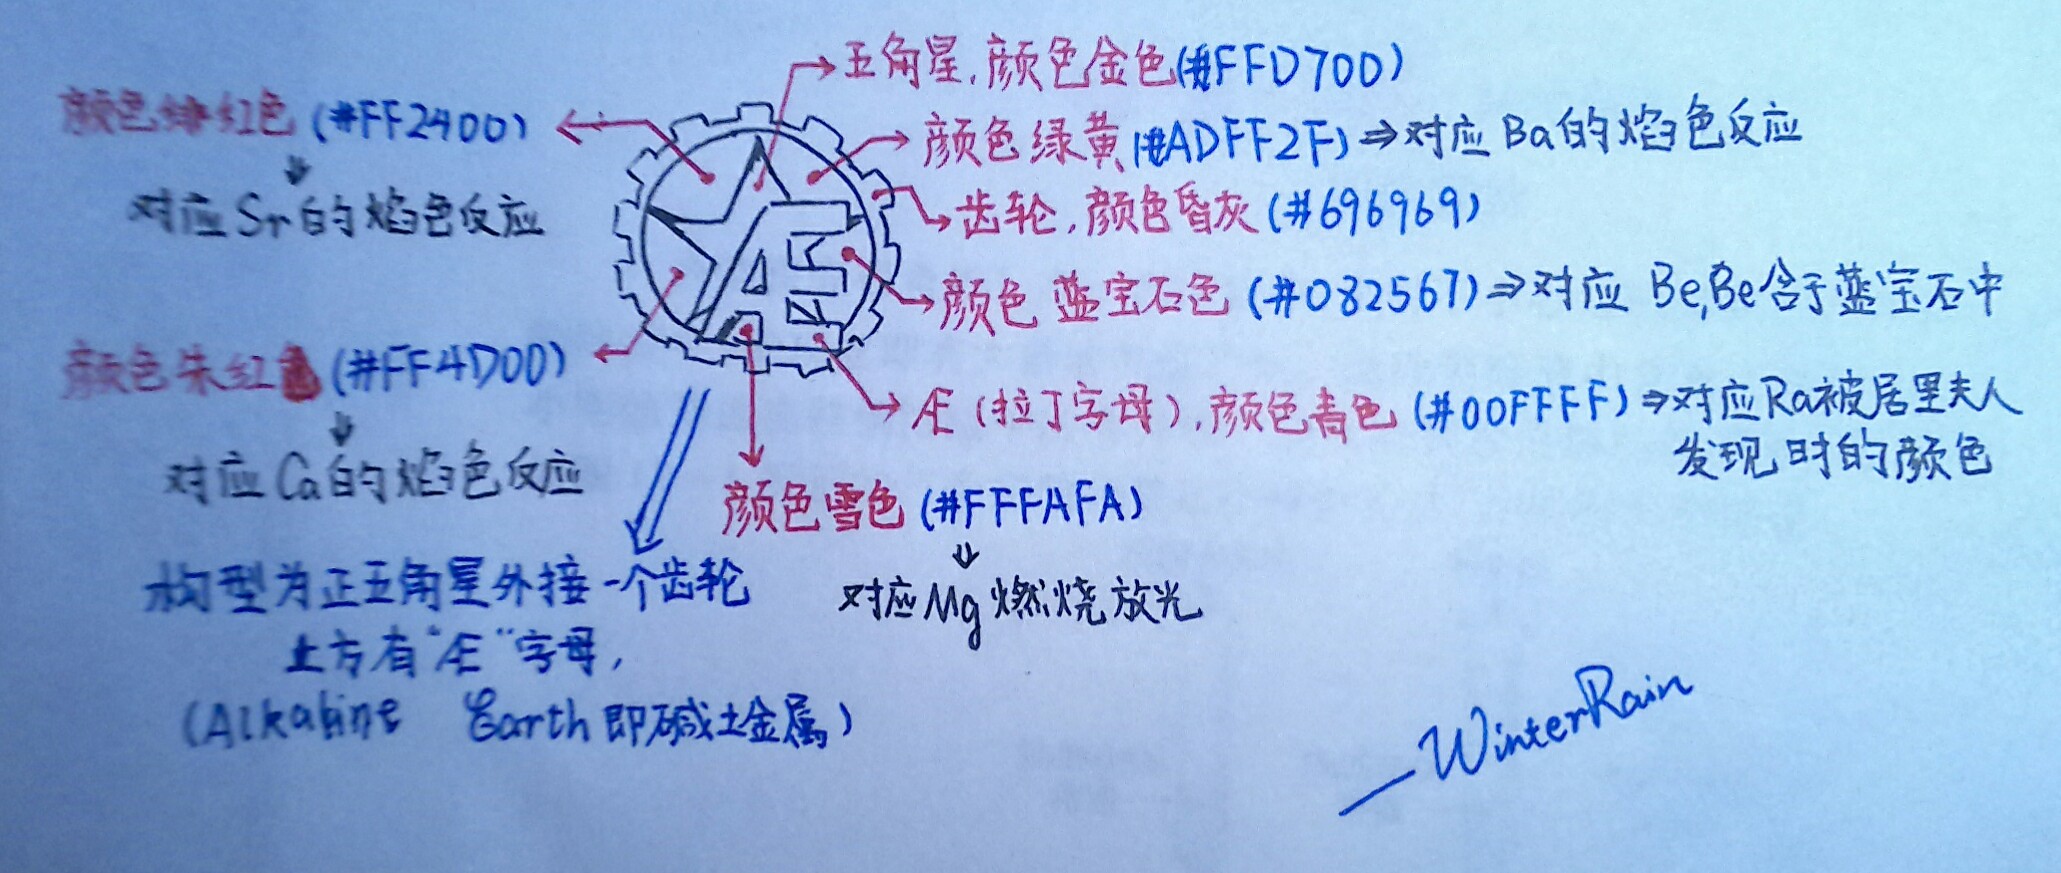 五角星,颜色金色(#FFD700)
颜色绯红色(#FF2400)
对应Sr的焰色反应
颜色绿黄(#ADFF2F)⇒对应Ba的焰色反应
齿轮,颜色昏灰(#696969)
颜色蓝宝石色(#082567)⇒对应Be,Be含于蓝宝石中
颜色朱红色(#FF4D00)
对应Ca的焰色反应
Æ(拉丁字母),颜色青色(#00FFFF)⇒对应Ra被居里夫人
发现时的颜色
颜色雪色(#FFFAFA)
对应Mg燃烧放光
构型为正五角星外接一个齿轮
上方有"Æ"字母,
(Alkaline Earth即碱土金属)
—WinterRain